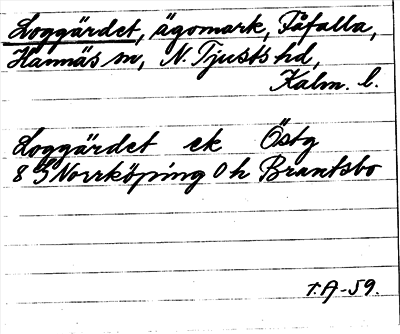 Loggärdet, ägomark, Fåfalla,
Hannäs sn, N. Tjusts hd,
Kalm. l.
Loggärdet ek Östg
8 G Norrköping O h Brantsbo
r. A-59.